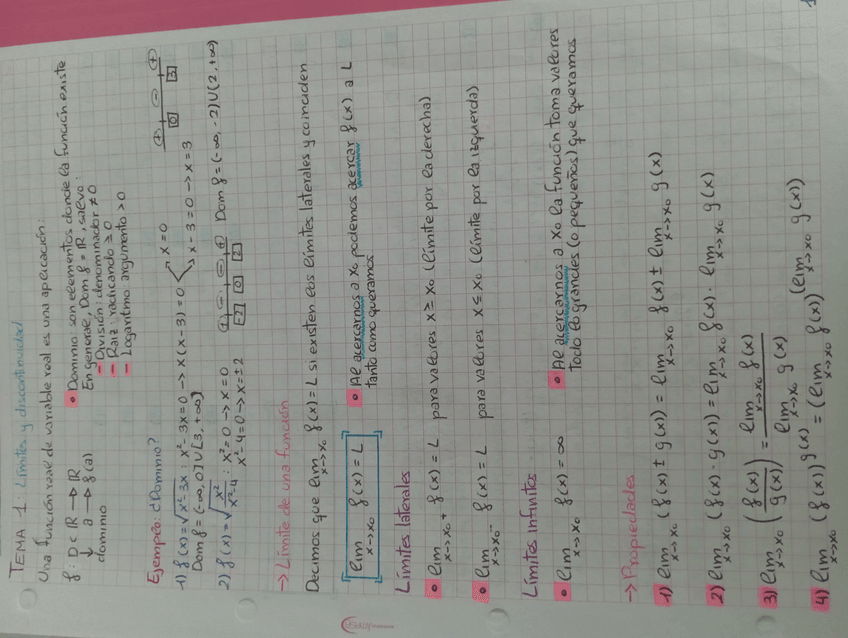 TEMA 1: Límites y discontinuidad
Una función real de variable real es una aplicación:
f: D ⊂ ℝ → ℝ
a → f(a)
dominio
• Dominio: son elementos donde la función existe
En general, Dom f = ℝ, salvo:
- División: denominador ≠ 0
- Raíz: radicando ≥ 0
- Logaritmo argumento > 0
Ejemplo: ¿Dominio?
1) f(x) = √(x²-3x) : x²-3x = 0 → x(x-3) = 0 → x = 0
→ x-3 = 0 → x = 3
Dom f = (-∞, 0] ∪ [3, +∞)
(+) (-) (+)
0 3
2) f(x) = √(x²/(x²-4)) : x² = 0 → x = 0
x²-4 = 0 → x = ±2
(+) (-) (-) (+)
-2 0 2
Dom f = (-∞, -2) ∪ (2, +∞)
→ Límite de una función
Decimos que lim x→x₀ f(x) = L si existen los límites laterales y coinciden
lim x→x₀ f(x) = L
• Al acercarnos a x₀ podemos acercar f(x) a L
tanto como queramos
Límites laterales
• lim x→x₀⁺ f(x) = L para valores x ≥ x₀ (límite por la derecha)
• lim x→x₀⁻ f(x) = L para valores x ≤ x₀ (límite por la izquierda)
Límites infinitos
• lim x→x₀ f(x) = ∞
• Al acercarnos a x₀ la función toma valores
todo lo grandes (o pequeños) que queramos
→ Propiedades
1) lim x→x₀ (f(x) ± g(x)) = lim x→x₀ f(x) ± lim x→x₀ g(x)
2) lim x→x₀ (f(x) · g(x)) = lim x→x₀ f(x) · lim x→x₀ g(x)
3) lim x→x₀ (f(x)/g(x)) = lim x→x₀ f(x) / lim x→x₀ g(x)
4) lim x→x₀ (f(x))^g(x) = (lim x→x₀ f(x))^(lim x→x₀ g(x))